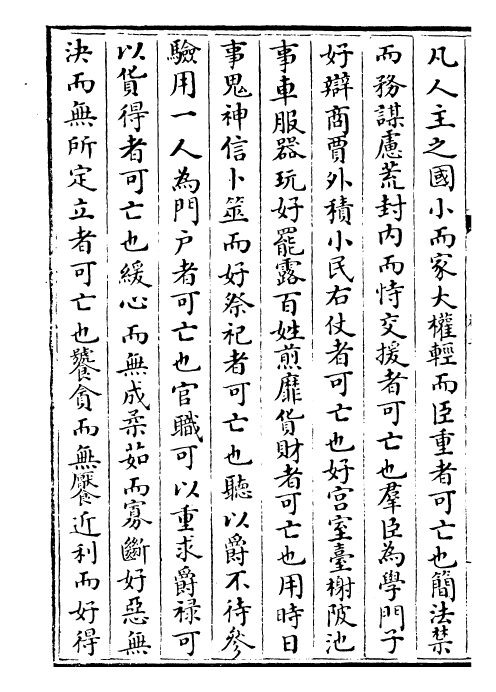 凡人主之國小而家大權輕而臣重者可亡也簡法禁
而務謀慮荒封内而恃交援者可亡也羣臣為學門子
好辯商賈外積小民右仗者可亡也好宫室臺榭陂池
事車服器玩好罷露百姓煎靡貨財者可亡也用時日
事鬼神信卜筮而好祭祀者可亡也聽以爵不待參
驗用一人為門户者可亡也官職可以重求爵禄可
以貨得者可亡也緩心而無成柔茹而寡斷好惡無
決而無所定立者可亡也饕貪而無饜近利而好得